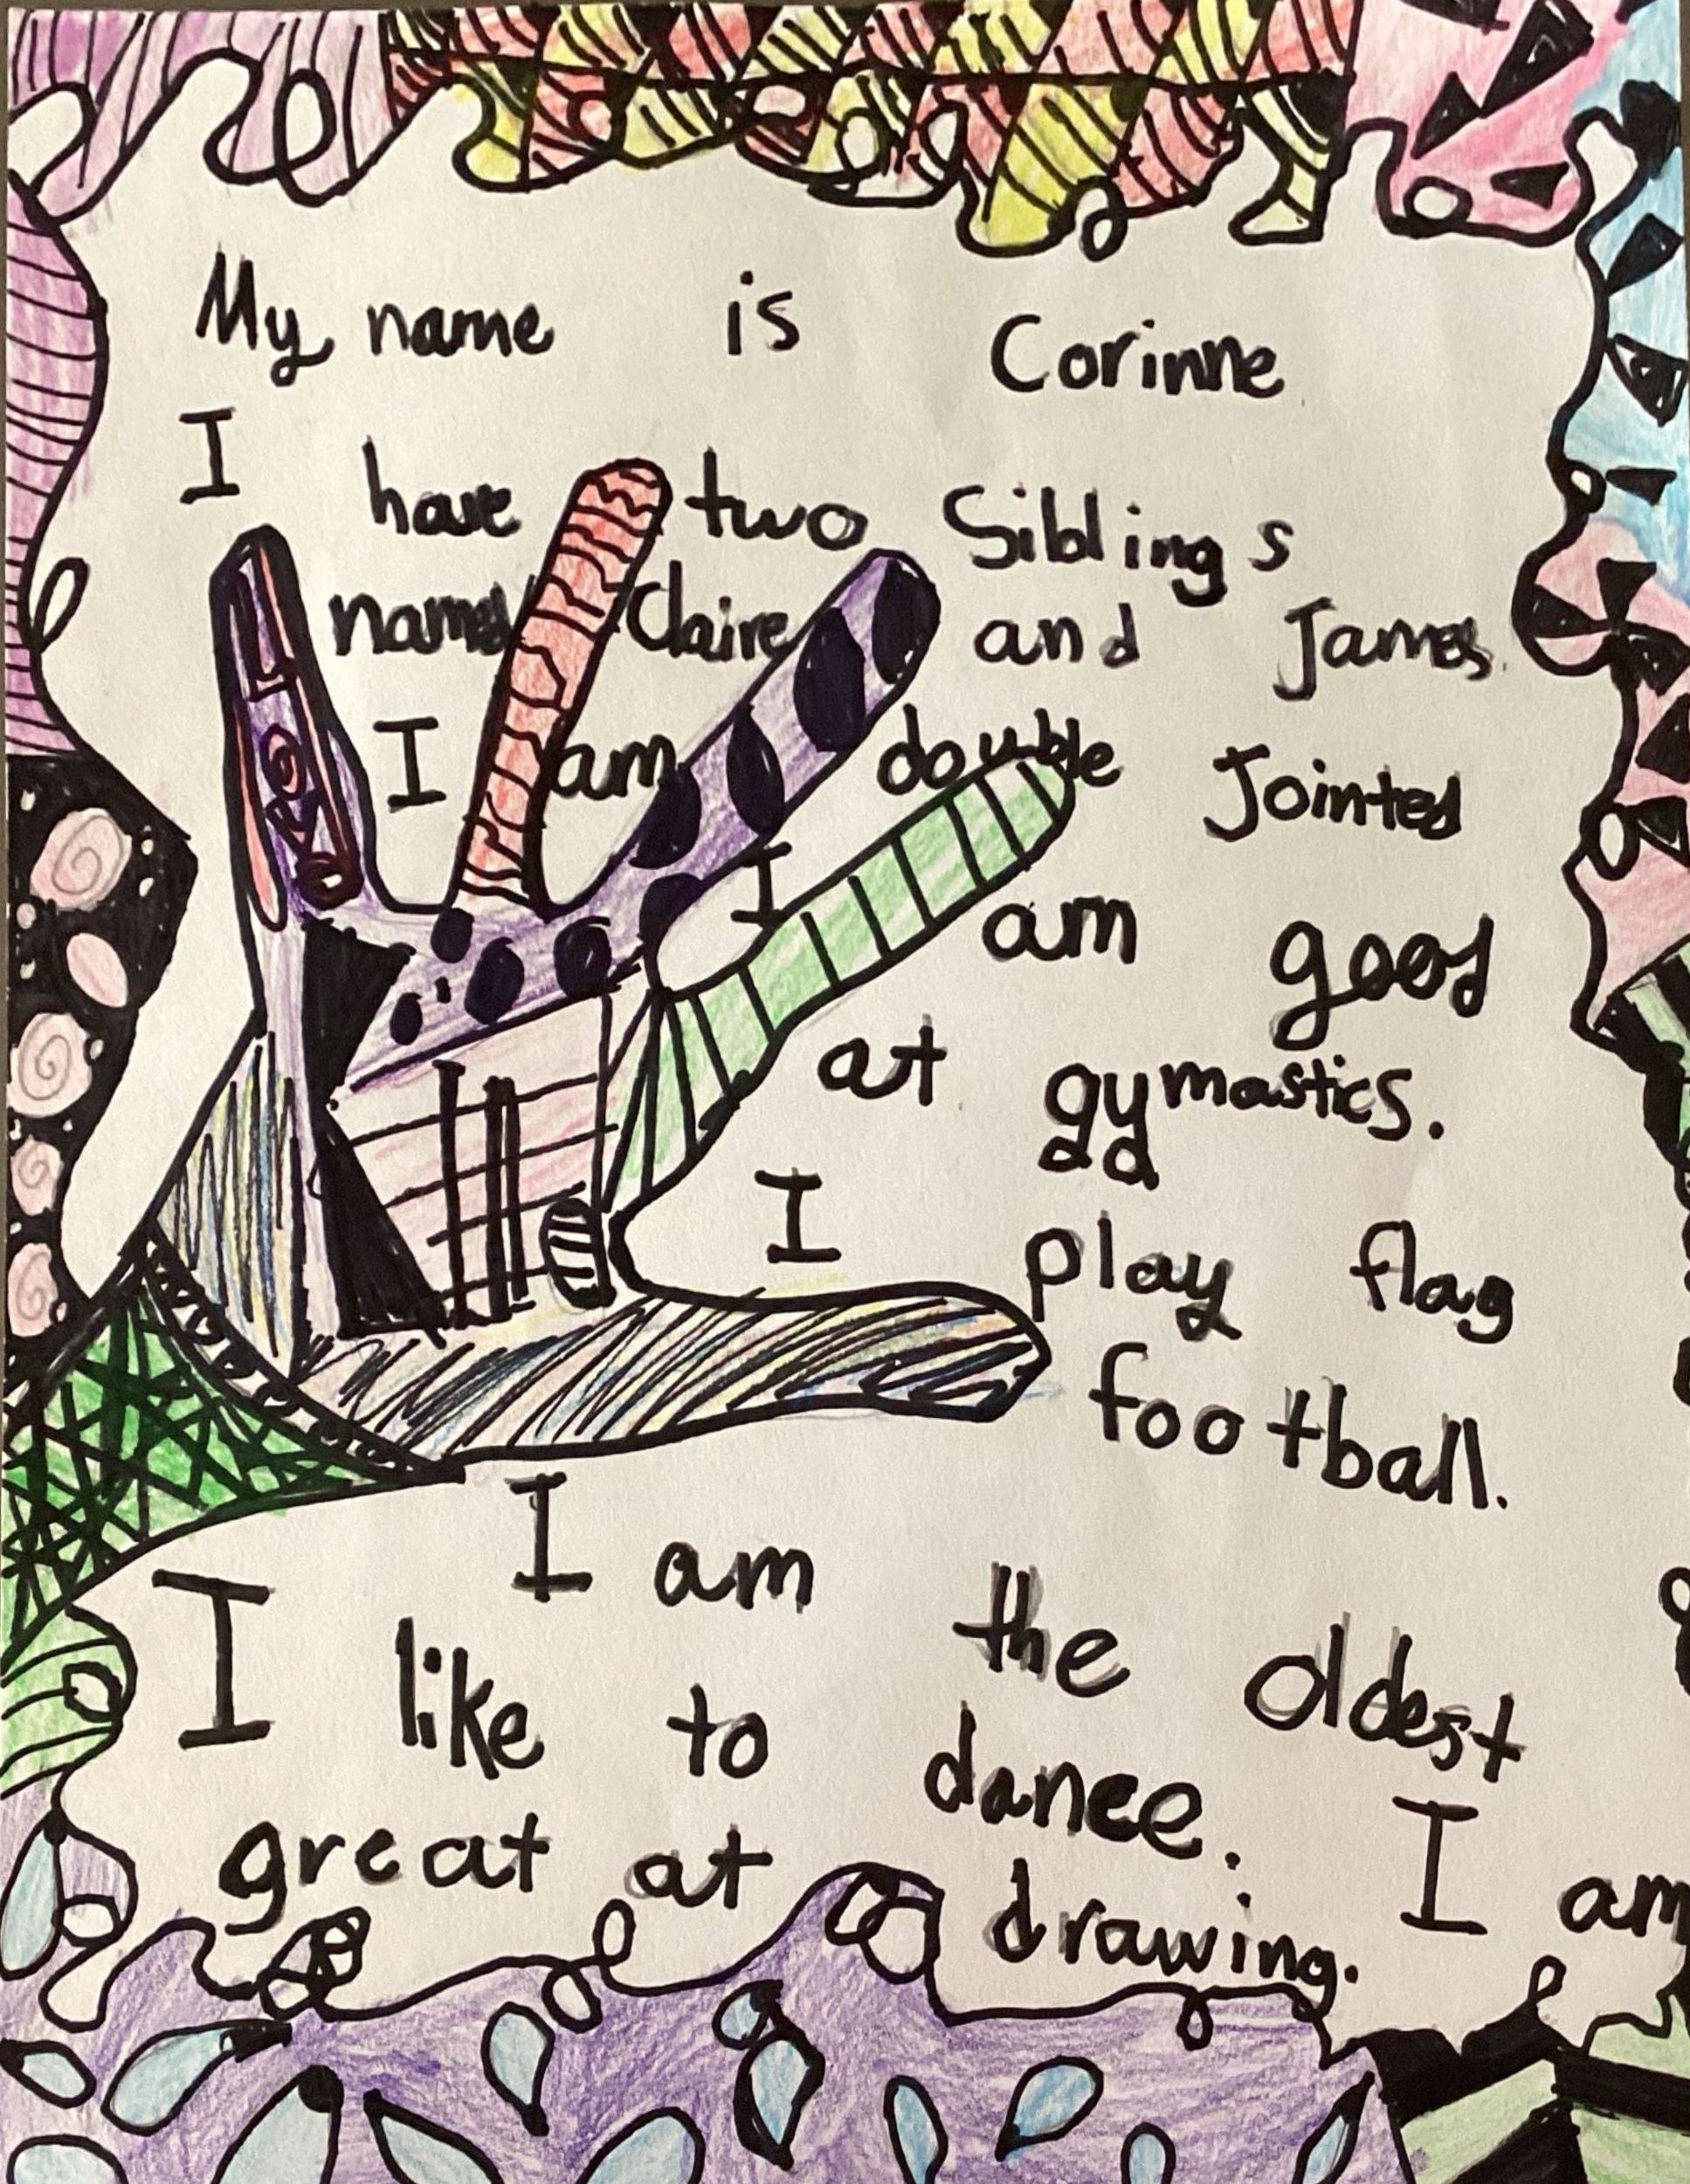 My name is Corinne
I have two Siblings
named Claire and James.
I am double Jointed
LOVE
I am good
at gymastics.
I play flag
football.
I am the oldest
I like to dance. I am
great at drawing.